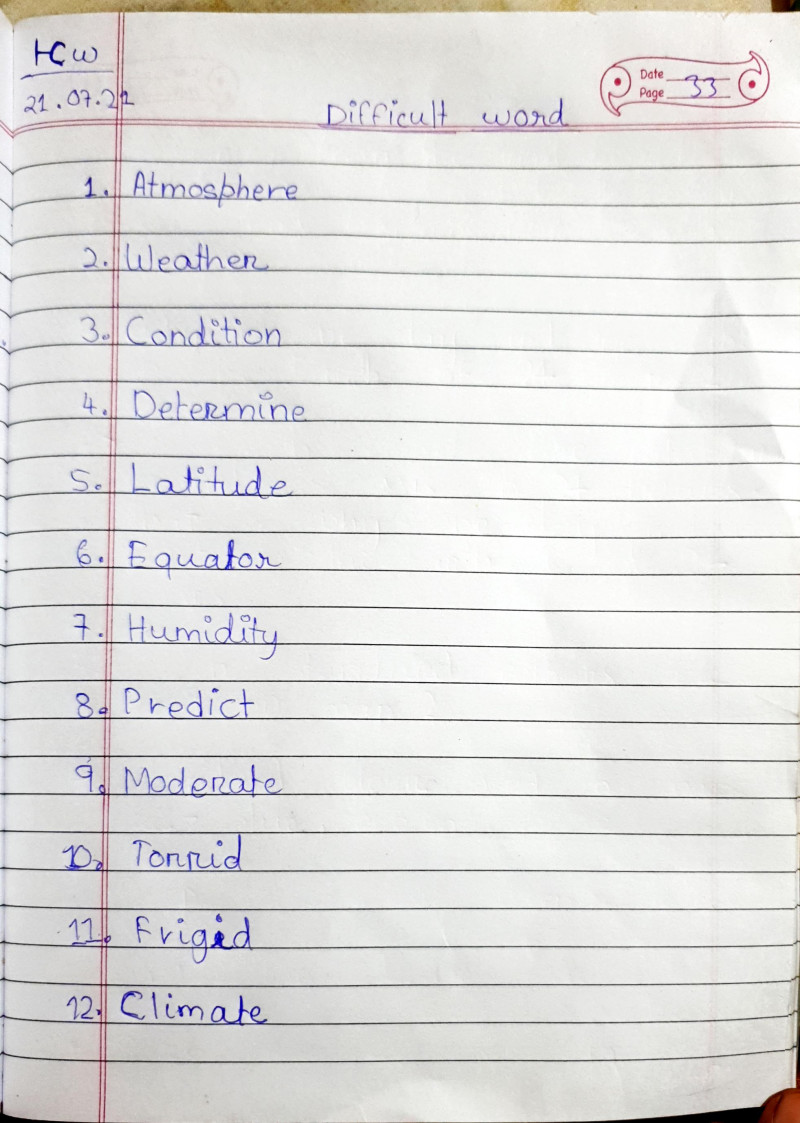 HCW
21.07.21
Date
Page 33
Difficult word
1. Atmosphere
2. Weather
3. Condition
4. Determine
5. Latitude
6. Equator
7. Humidity
8. Predict
9. Moderate
10. Torrid
11. Frigid
12. Climate